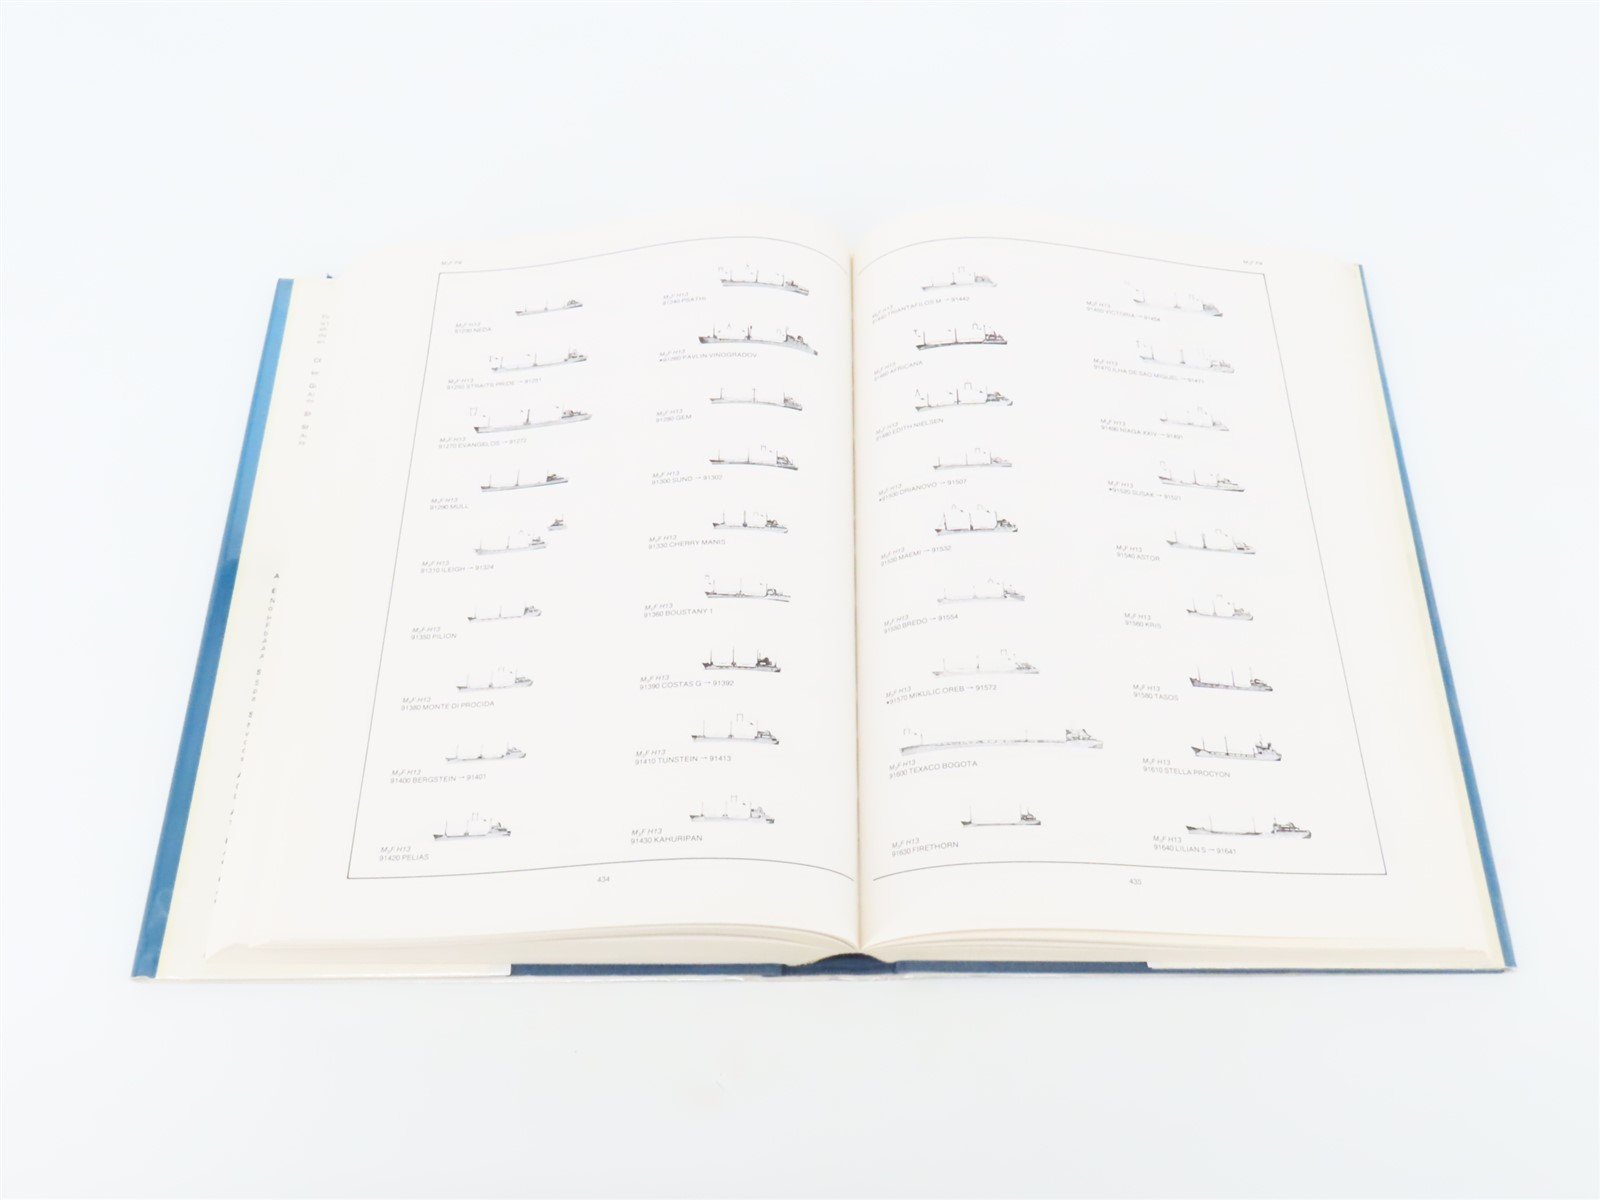 M₂F H13
91230 NEDA
M₂F H13
91250 STRAITS PRIDE → 91251
M₂F H13
91270 EVANGELOS → 91272
M₂F H13
91290 MULL
M₂F H13
91310 ILEIGH → 91324
M₂F H13
91350 PILION
M₂F H13
91380 MONTE DI PROCIDA
M₂F H13
91400 BERGSTEIN → 91401
M₂F H13
91420 PELIAS
M₂F H13
91240 PSATHI
M₂F H13
•91260 PAVLIN VINOGRADOV
M₂F H13
91280 GEM
M₂F H13
91300 SUNO → 91302
M₂F H13
91330 CHERRY MANIS
M₂F H13
91360 BOUSTANY 1
M₂F H13
91390 COSTAS G → 91392
M₂F H13
91410 TUNSTEIN → 91413
M₂F H13
91430 KAHURIPAN
434
M₂F H13
91440 TRIANTAFILOS M → 91442
M₂F H13
91460 AFRICANA
M₂F H13
91480 EDITH NIELSEN
M₂F H13
•91500 DRIANOVO → 91507
M₂F H13
91530 MAEMI → 91532
M₂F H13
91550 BREDO → 91554
M₂F H13
•91570 MIKULIC OREB → 91572
M₂F H13
91600 TEXACO BOGOTA
M₂F H13
91630 FIRETHORN
M₂F H13
91450 VICTORIA → 91454
M₂F H13
91470 ILHA DE SAO MIGUEL → 91471
M₂F H13
91490 NIAGA XXIV → 91491
M₂F H13
•91520 SUSAK → 91521
M₂F H13
91540 ASTOR
M₂F H13
91560 KRIS
M₂F H13
91580 TASOS
M₂F H13
91610 STELLA PROCYON
M₂F H13
91640 LILIAN S → 91641
435